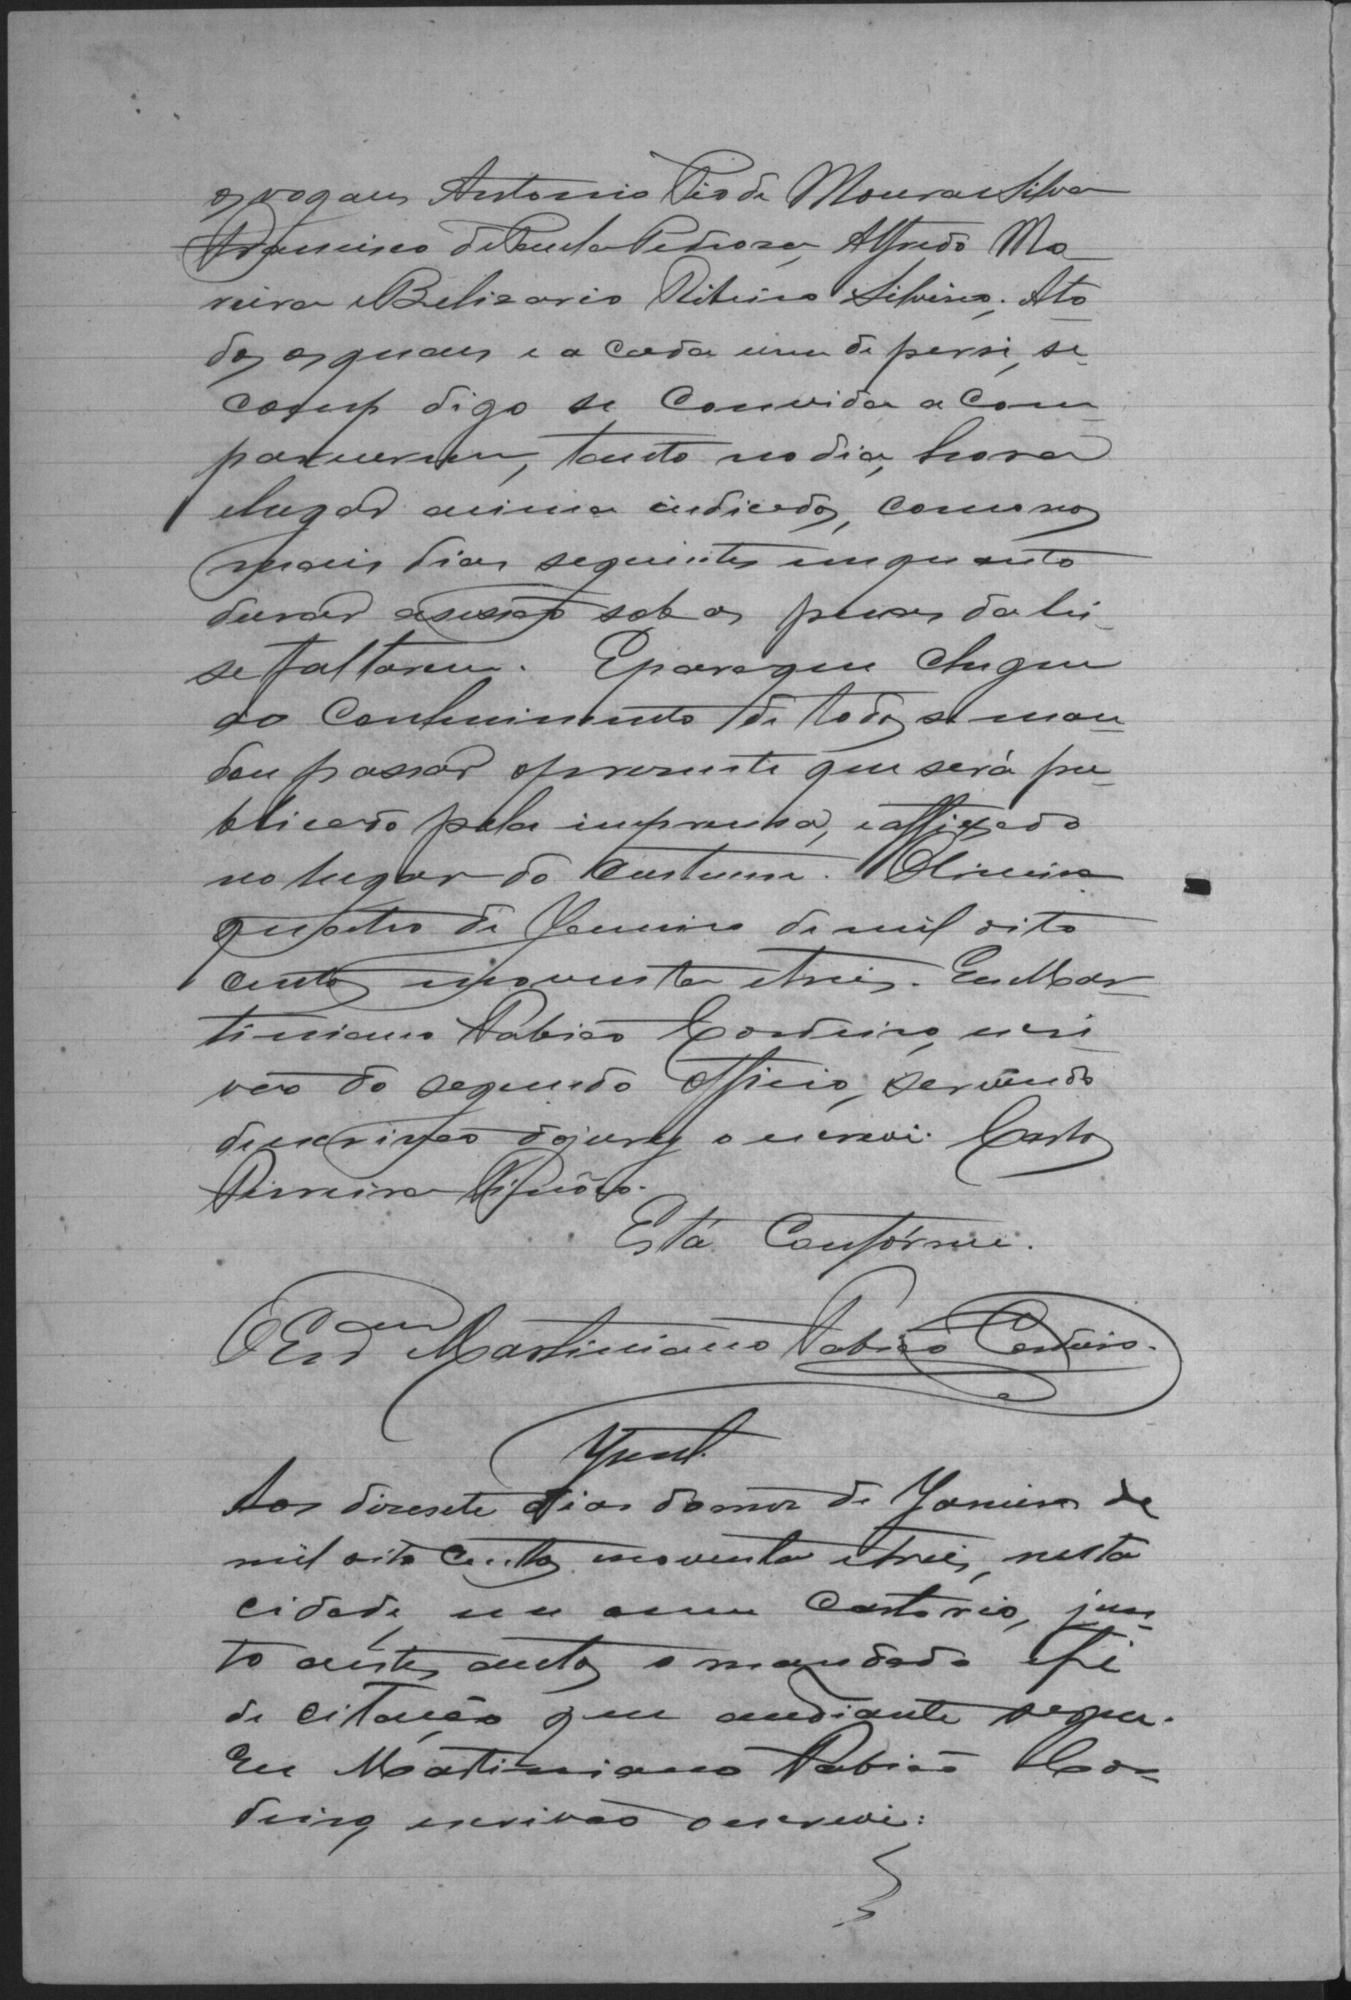 os vogaes Antonio Pio de Moura e Silva
Francisco de Paula Pedroza, Alfredo Mo-
reira e Belizario Ribeiro Silvino. Ato-
dos os quaes e a cada um de persi, se
comp digo se Convida a Com-
parecerem, tanto no dia, hora
e lugar acima indicados, como nos
mais dias seguintes emquanto
durar a sessão sob as penas da lei
se faltarem. E para que chegue
ao Conhecimento de todos se man-
dou passar o presente que será pu-
blicado pela imprensa, e affixado
no lugar do Custume. Oliveira
quatro de Janeiro de mil oito
centos noventa e tres. Eu Mar-
timiano Fabião Cordeiro, escri
vão do segundo Officio, servindo
de escrivão do jury o escrevi. Carlos
Ferreira
Está Confórme.
Martimiano Fabião Cordeiro.
Aos dizesete dias do mez de Janeiro de
mil oito Centos noventa e tres, nesta
cidade, em meu Cartorio, jun-
to aestes autos o mandado e fé
de citação que andiante segue.
Eu Martimiano Fabião Cor-
deiro, escrivão o escrevi: